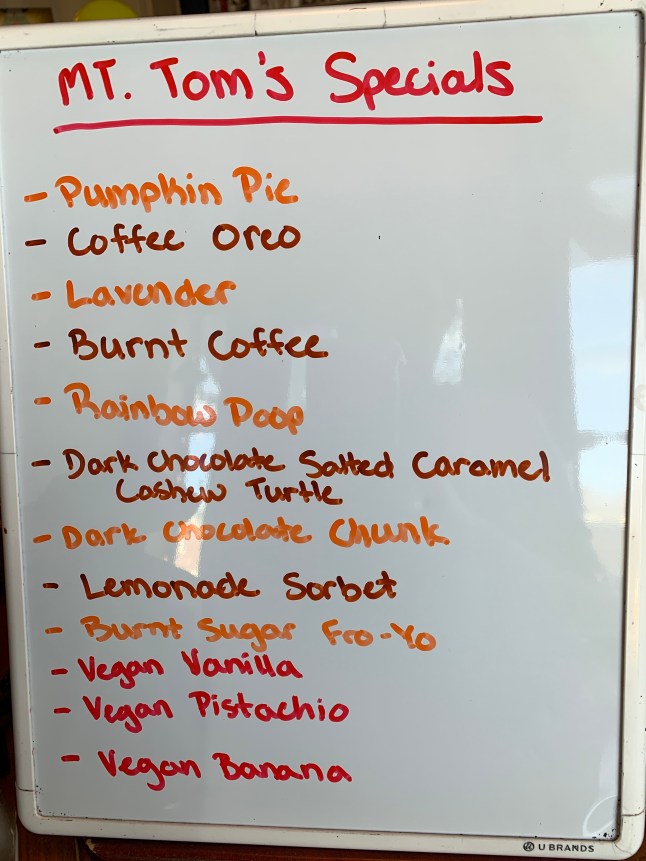 MT. Tom's Specials
- Pumpkin Pie
- Coffee Oreo
- Lavender
- Burnt Coffee
- Rainbow Poop
- Dark Chocolate Salted Caramel
Cashew Turtle
- Dark Chocolate Chunk
- Lemonade Sorbet
- Burnt Sugar Fro-Yo
- Vegan Vanilla
- Vegan Pistachio
- Vegan Banana
U BRANDS